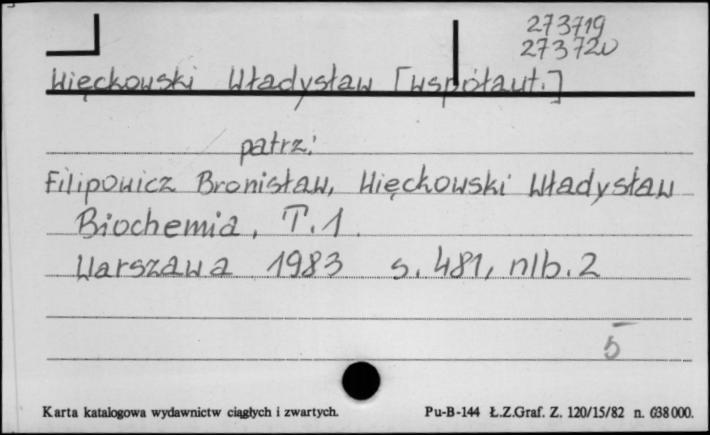 273719
273720
Więckowski Władysław [współaut.]
patrz:
Filipowicz Bronisław, Więckowski Władysław
Biochemia, T.1.
Warszawa 1983 s. 481, nlb. 2
5
Karta katalogowa wydawnictw ciągłych i zwartych. Pu-B-144 Ł.Z.Graf. Z. 120/15/82 n. 638 000.